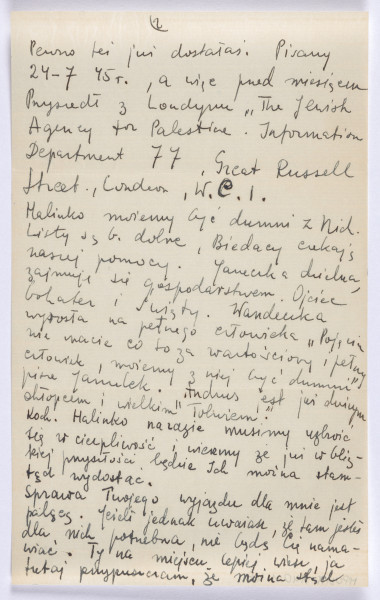 2
Pewno też już dostałaś. Pisany
24-7 45 r., a więc przed miesiącem
Przyszedł z Londynu „The Jewish
Agency for Palestine. Information
Department 77, Great Russell
Street., London, W.C.1.
Halinko możemy być dumni z Nich.
Listy są b. dobre, Biedacy czekają
naszej pomocy. Janeczka dzielna,
zajmuje się gospodarstwem. Ojciec
bohater i święty. Wandeczka
wyrosła na pełnego człowieka „Pojęcia
nie macie co to za wartościowy i pełny
człowiek, możemy z niej być dumni"
pisze Janeczek. „Andrus jest już dużym
chłopcem i wielkim
Koch. Halinko narazie musimy uzbroić
się w cierpliwość i wierzymy że już w bliz-
kiej przyszłości będzie Ich można stam-
tąd wydostać.
Sprawa Twojego wyjazdu dla mnie jest
palącą. Jeśli jednak uważasz, że tam jesteś
dla nich potrzebna, nie będę Cię nama-
wiać. Ty na miejscu lepiej wiesz, ja
tutaj przypuszczam, że można stąd